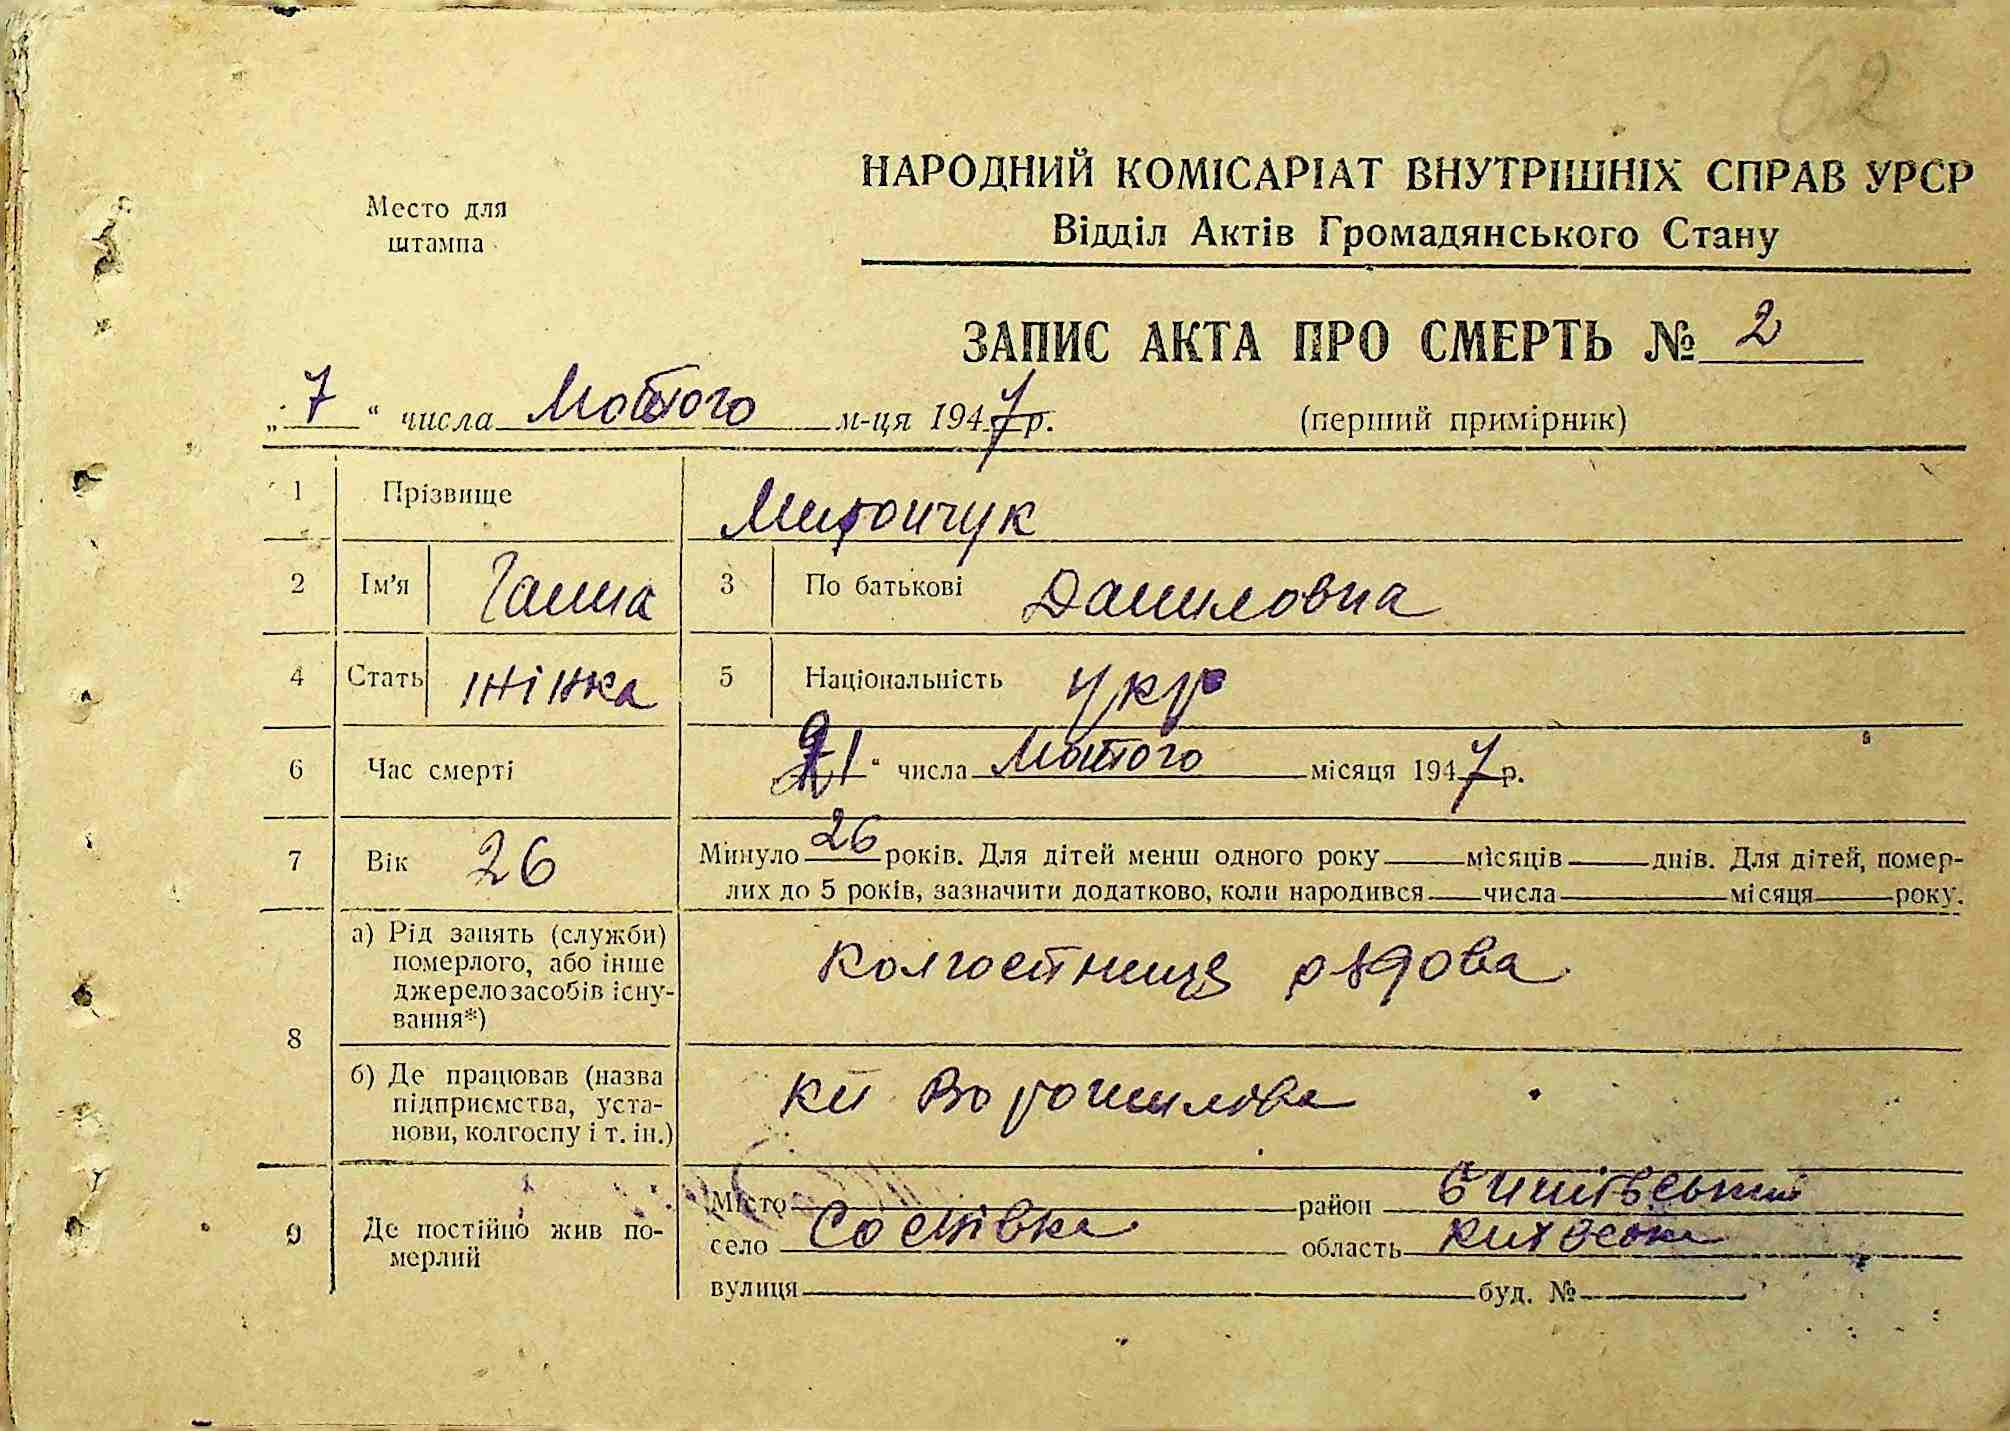 62
НАРОДНИЙ КОМІСАРІАТ ВНУТРІШНІХ СПРАВ УРСР
Место для
штампа
Відділ Актів Громадянського Стану
ЗАПИС АКТА ПРО СМЕРТЬ № 2
„7“ числа Лютого м-ця 1947р.
(перший примірник)
1 Прізвище Мирончук
2 Ім'я Ганна 3 По батькові Даниловна
4 Стать жінка 5 Національність укр
6 Час смерті “ числа Лютого місяця 1947р.
7 Вік 26 Минуло 26 років. Для дітей менш одного року місяців днів. Для дітей, помер-
лих до 5 років, зазначити додатково, коли народився числа місяця року.
8 а) Рід занять (служби)
померлого, або інше
джерело засобів існу-
вання*)
колгоспниця рядова
б) Де працював (назва
підприємства, уста-
нови, колгоспу і т. ін.)
кп Ворошилова
9 Де постійно жив по-
мерлий
Місто район
село Соснівка область Київська
вулиця буд. №